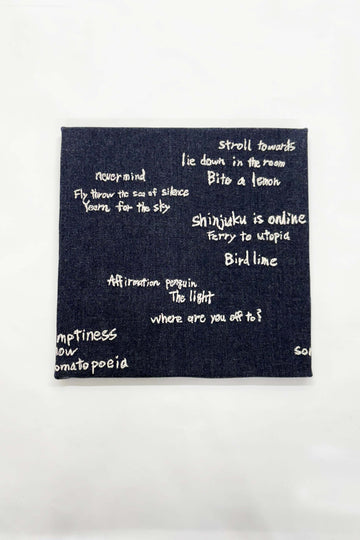 stroll towards
lie down in the room
Bite a lemon
nevermind
Fly throw the sea of silence
Yearn for the sky
Shinjuku is online
Ferry to utopia
Bird lime
Affirmation penguin
The light
where are you off to?
mptiness
ow
omatopoeia
so